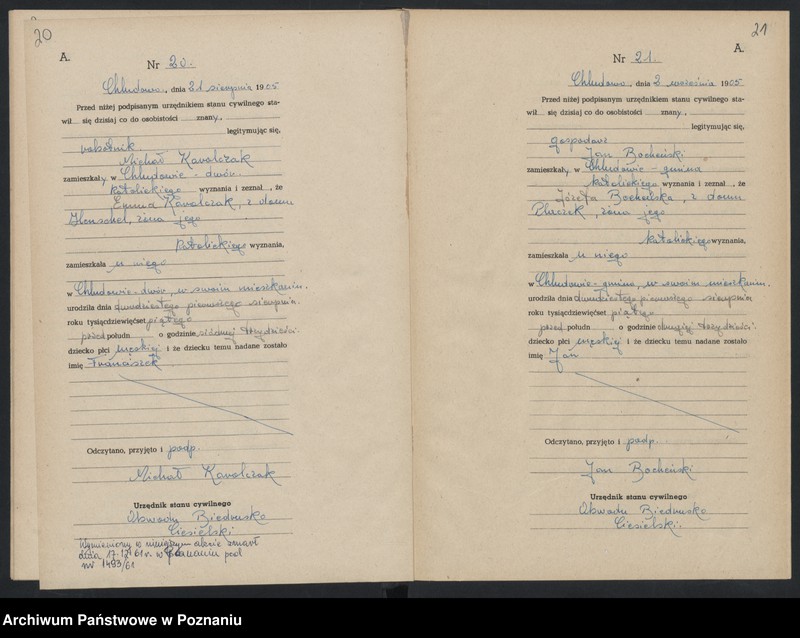 20
A.
Nr 20.
Chludowo, dnia 21 sierpnia 1905
Przed niżej podpisanym urzędnikiem stanu cywilnego sta-
wił się dzisiaj co do osobistości znany,
legitymując się,
robotnik.
Michał Kavalczak
zamieszkały w Chludowie - dwór.
katolickiego wyznania i zeznał, że
Emma Kavalczak, z domu
Henschel, żona jego
katolickiego wyznania,
zamieszkała u niego
w Chludowie-dwór, w swoim mieszkaniu.
urodziła dnia dwudziestego pierwszego sierpnia.
roku tysiącdziewięćset piątego
przed połudn o godzinie siódmej trzydzieści.
dziecko płci męskiej i że dziecku temu nadane zostało
imię Franciszek
Odczytano, przyjęto i podp.
Michał Kavalczak
Urzędnik stanu cywilnego
Obwodu Biedrusko
Ciesielski
Wymieniony w niniejszym akcie zmarł
dnia 17.12.61 r. w Poznaniu pod
nr 1483/61
21
A.
Nr 21.
Chludowo, dnia 2 września 1905
Przed niżej podpisanym urzędnikiem stanu cywilnego sta-
wił się dzisiaj co do osobistości znany,
legitymując się,
gospodarz
Jan Bocheński
zamieszkały w Chludowie - gmina
katolickiego wyznania i zeznał, że
Józefa Bocheńska, z domu
żona jego
katolickiego wyznania,
zamieszkała u niego
w Chludowie-gmina, w swoim mieszkaniu.
urodziła dnia dwudziestego pierwszego sierpnia
roku tysiącdziewięćset piątego
przed połudn o godzinie trzydzieści.
dziecko płci męskiej i że dziecku temu nadane zostało
imię Jan
Odczytano, przyjęto i podp.
Jan Bocheński
Urzędnik stanu cywilnego
Obwodu Biedrusko
Ciesielski.
Archiwum Państwowe w Poznaniu